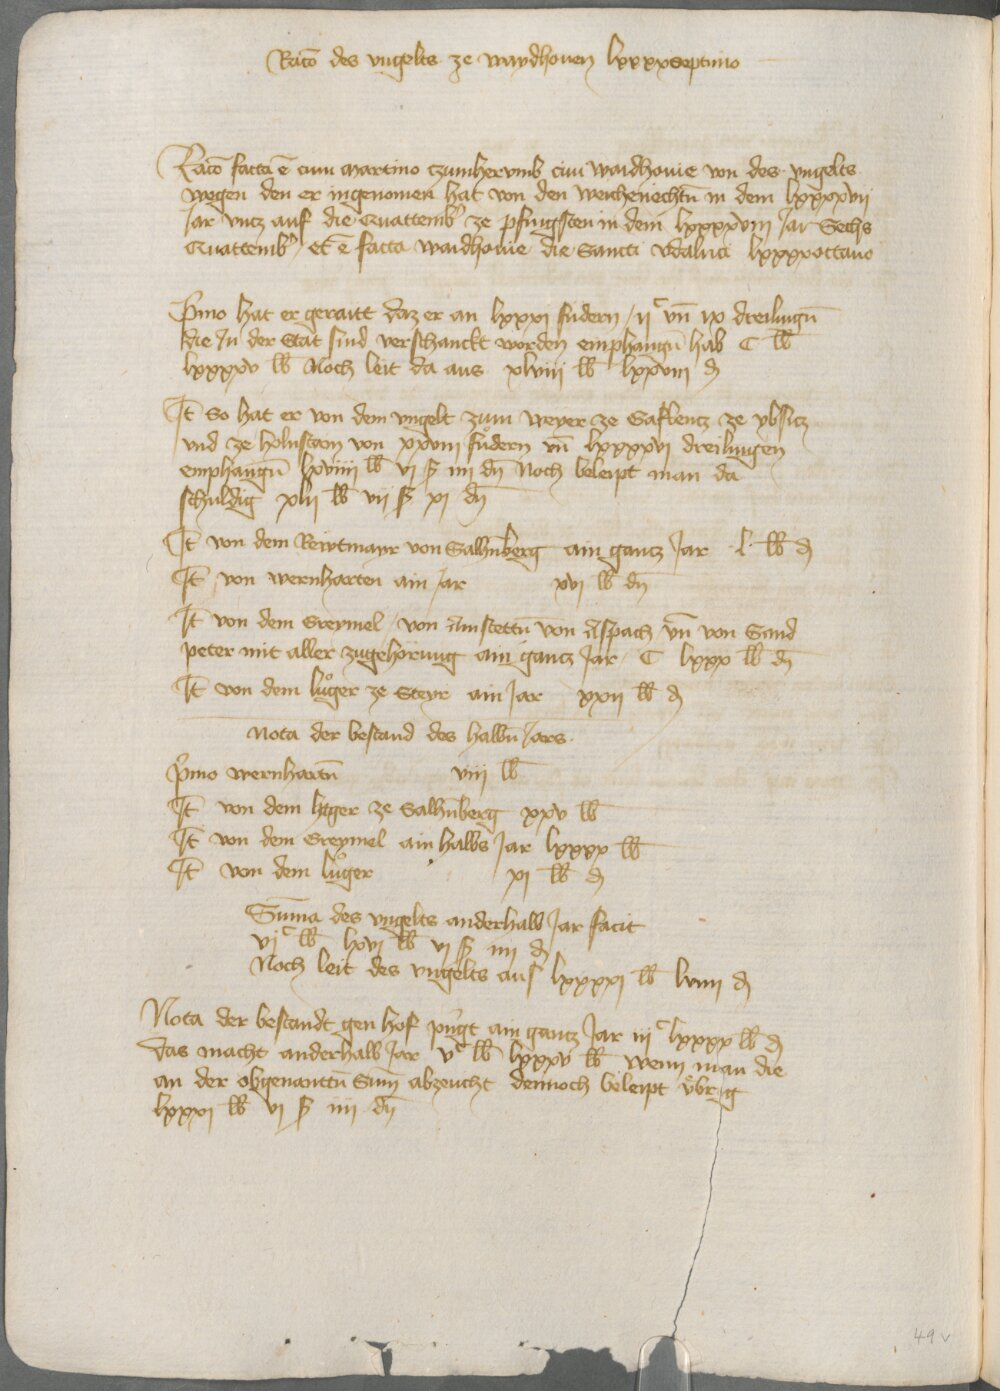 Raco des vngelts ze waydhouen lxxxxseptimo
Raco facta e cum Martino czumhervmb ciui waidhouie von des vngelts
wegen den er ingenomen hat von den weichenechtn in dem lxxxxvii
Jar vncz auf die Quattemb ze pfingsten in dem lxxxxviii Jar Sechs
Quattemb / et e facta waidhouie die Sancti Vdalrici lxxxxoctauo
Primo hat er geraitt daz er an lxxxi fudern / iiᶜ vnd ix dreilingn
die Jn der Stat sind verschanckt worden emphangn hab C lb
lxxxxv lb Noch leit da aus xlviii lb lxxviii d
It So hat er von dem vngelt zum weyer ze Gaflencz ze ybsicz
vnd ze holnstain von xxviii fudern vn lxxxxvi dreilingen
emphangn lxviiii lb vi ß iiii dn Noch beleipt man da
schuldig xlii lb vii ß xi dn
It von dem Reytmayr von Salhnberg ain gancz Jar l lb d
It von wernharten ain Jar xvi lb dn
It von dem Greymel / von Amstettn von Aspach vn von Sand
peter mit aller zugehörung ain gancz Jar C lxxx lb dn
It von dem luger ze Steyr ain Jar xxii lb d
Nota der bestand des halbn Jars
primo wernhartn viii lb
It von dem ze Salhnberg xxv lb
It von dem Greymel ain halbs Jar lxxxx lb
It von dem luger xi lb d
Suma des vngelts anderhalb Jar facit
viᶜ lb lxvi lb vi ß iiii d
Noch leit des vngelts aus lxxxxi lb lviii d
Nota der bestandt gen hof pringt ain gancz Jar iiiᶜ lxxxx lb d
das macht anderhalb Jar vᶜ lb lxxxv lb wenn man die
an der obgenanttn Sum abzeucht dennoch beleipt vbrig
lxxxi lb vi ß iiii dn
49 v